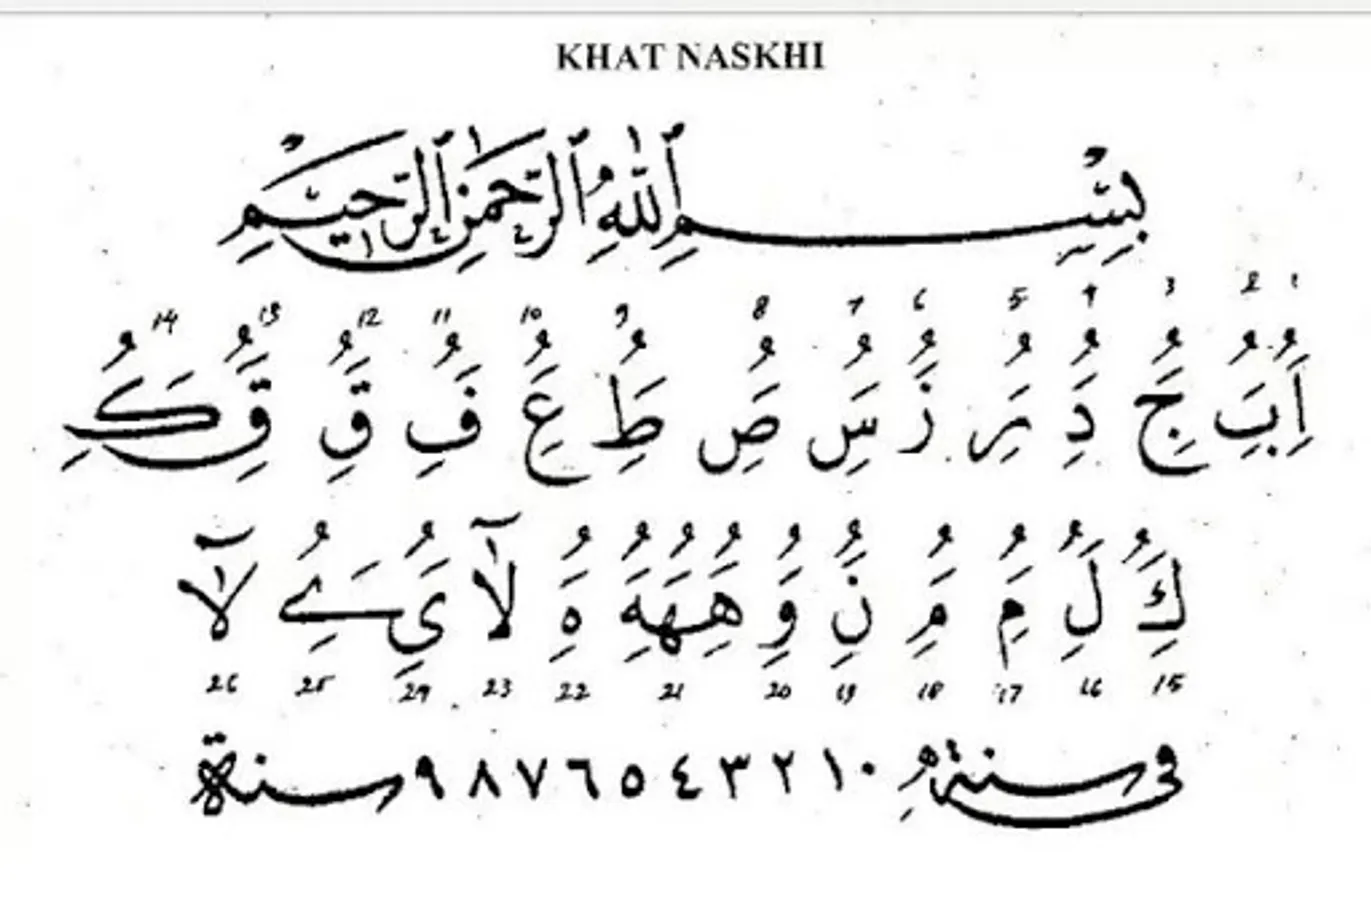 KHAT NASKHI
بِسْمِ ٱللّٰهِ ٱلرَّحْمٰنِ ٱلرَّحِيْمِ
1 2 3 4 5 6 7 8 9 10 11 12 13 14
ا ب ج د ر ز س ص ط ع ف ق ق ك
ك ل م م ن و ههه ه لا ى ے لا
15 16 17 18 19 20 21 22 23 24 25 26
في سنة ٠ ١ ٢ ٣ ٤ ٥ ٦ ٧ ٨ ٩ سنة